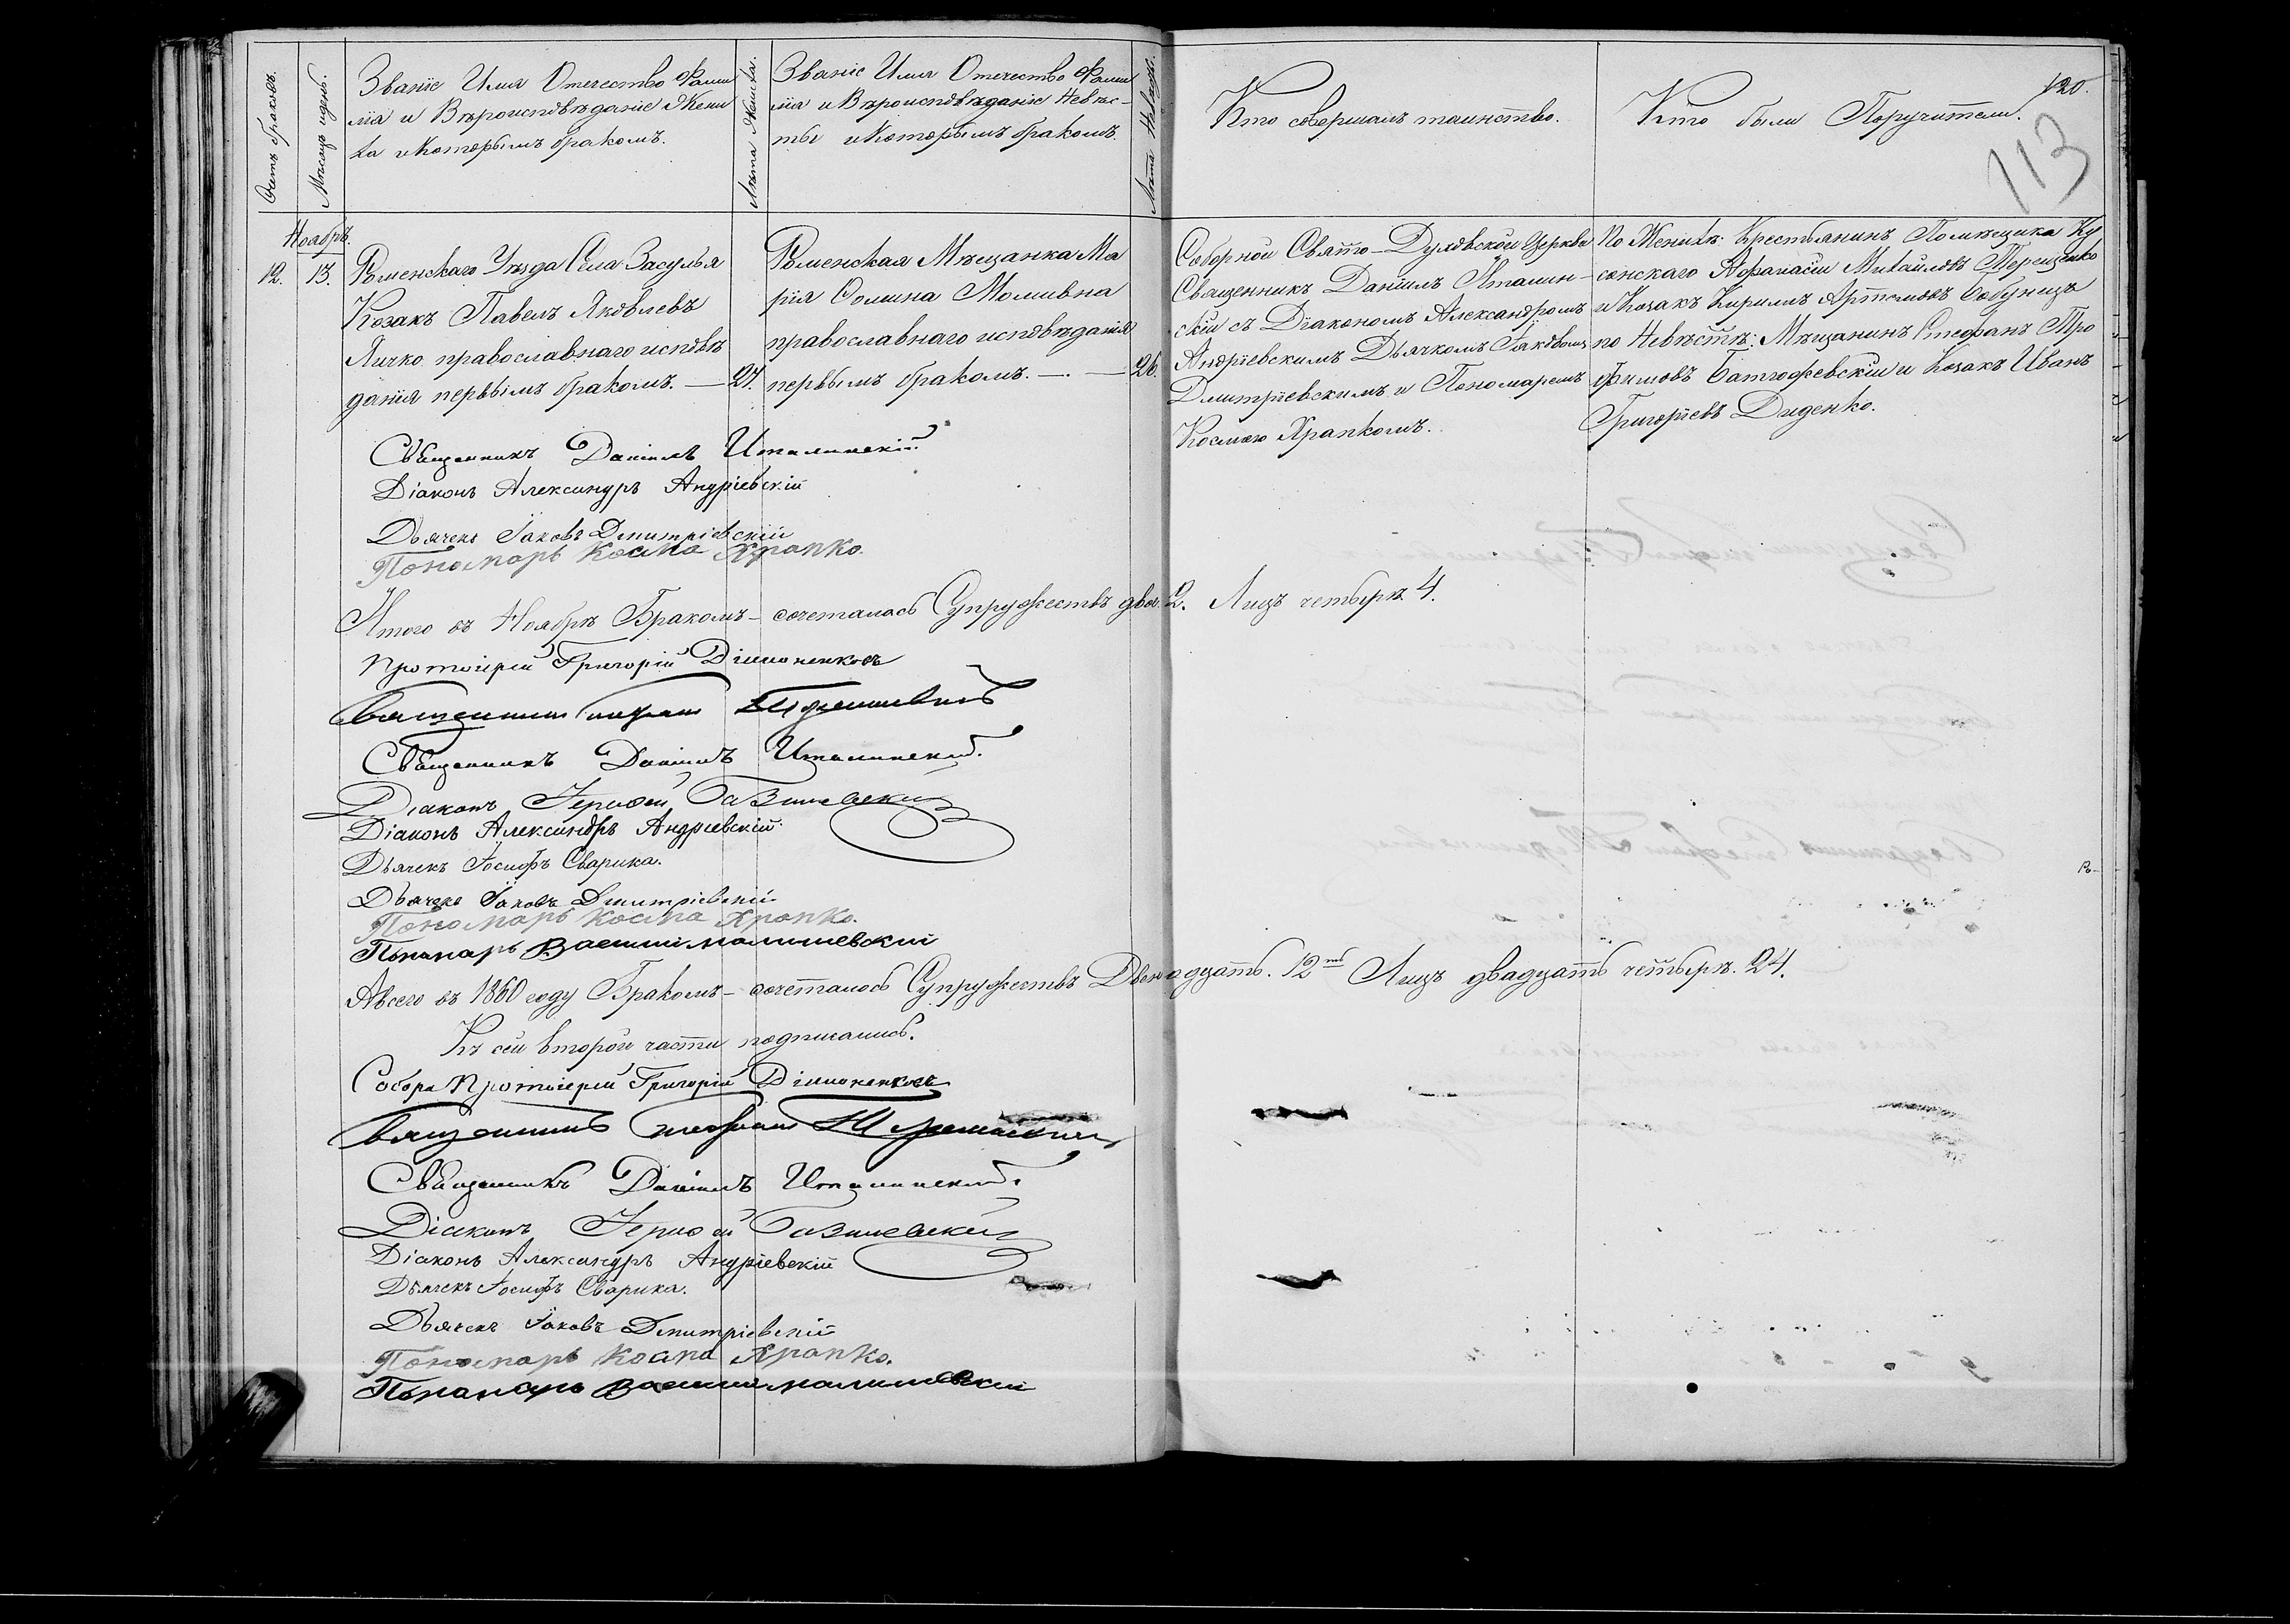 120.
113
Счетъ браковъ.
Мѣсяцъ и день.
Званіе Имя Отечество Фами
лія и Вѣроисповѣданіе Жени
ха и Которымъ бракомъ.
Лѣта Жениха.
Званіе Имя Отечество Фами
лія и Вѣроисповѣданіе Невѣс-
ты и Которымъ бракомъ.
Лѣта Невѣсты.
Кто совершалъ таинство.
Кто были Поручители.
Ноябрь.
12. 13. Роменскаго Уѣзда Села Засулья
Козакъ Павелъ Яковлевъ
Личко православнаго исповѣ
данія первымъ бракомъ. — 27.
Роменская Мѣщанка Ма
рія
православнаго исповѣданія
первымъ бракомъ. —. — 26.
Соборной Свято-Духовской Церкви
Священникъ Даніилъ Италин-
скій съ Діакономъ Александромъ
Андріевскимъ Дьячкомъ Іаковомъ
Дмитріевскимъ и Пономаремъ
Космою Храпкомъ.
По Женихѣ: Крестьянинъ Помѣщика Ку
Афанасій Михайловъ Терещенко
и Козакъ Кирилъ Артемовъ
по Невѣстѣ: Мѣщанинъ Стефанъ Тро
фимовъ и Козакъ Иванъ
Григоріевъ Диденко.
Священникъ Даніилъ Италинскій
Діаконъ Александръ Андріевскій
Дьячекъ Іаковъ Дмитріевскій
Пономарь Косма Храпко.
Итого въ Ноябрѣ Бракомъ - сочеталось Супружествъ два. 2. Лицъ четыре. 4.
Протоіерей Григорій Діимоненковъ
Священникъ
Священникъ Даніилъ Италинскій.
Діаконъ
Діаконъ Александръ Андріевскій.
Дьячекъ Іосифъ Сварика.
Дьячекъ Іаковъ Дмитріевскій
Пономарь Косма Храпко.
Пономарь Василій Малишевскій
А всего въ 1860 году Бракомъ - сочеталось Супружествъ Двенадцать. 12ть Лицъ двадцать четыре. 24.
Къ сей второй части подписались.
Собора Протоіерей Григорій Діимоненковъ
Священникъ
Священникъ Даніилъ Италинскій.
Діаконъ
Діаконъ Александръ Андріевскій
Дьячекъ Іосифъ Сварика.
Дьячекъ Іаковъ Дмитріевскій
Пономарь Косма Храпко.
Пономарь Василій Малишевскій